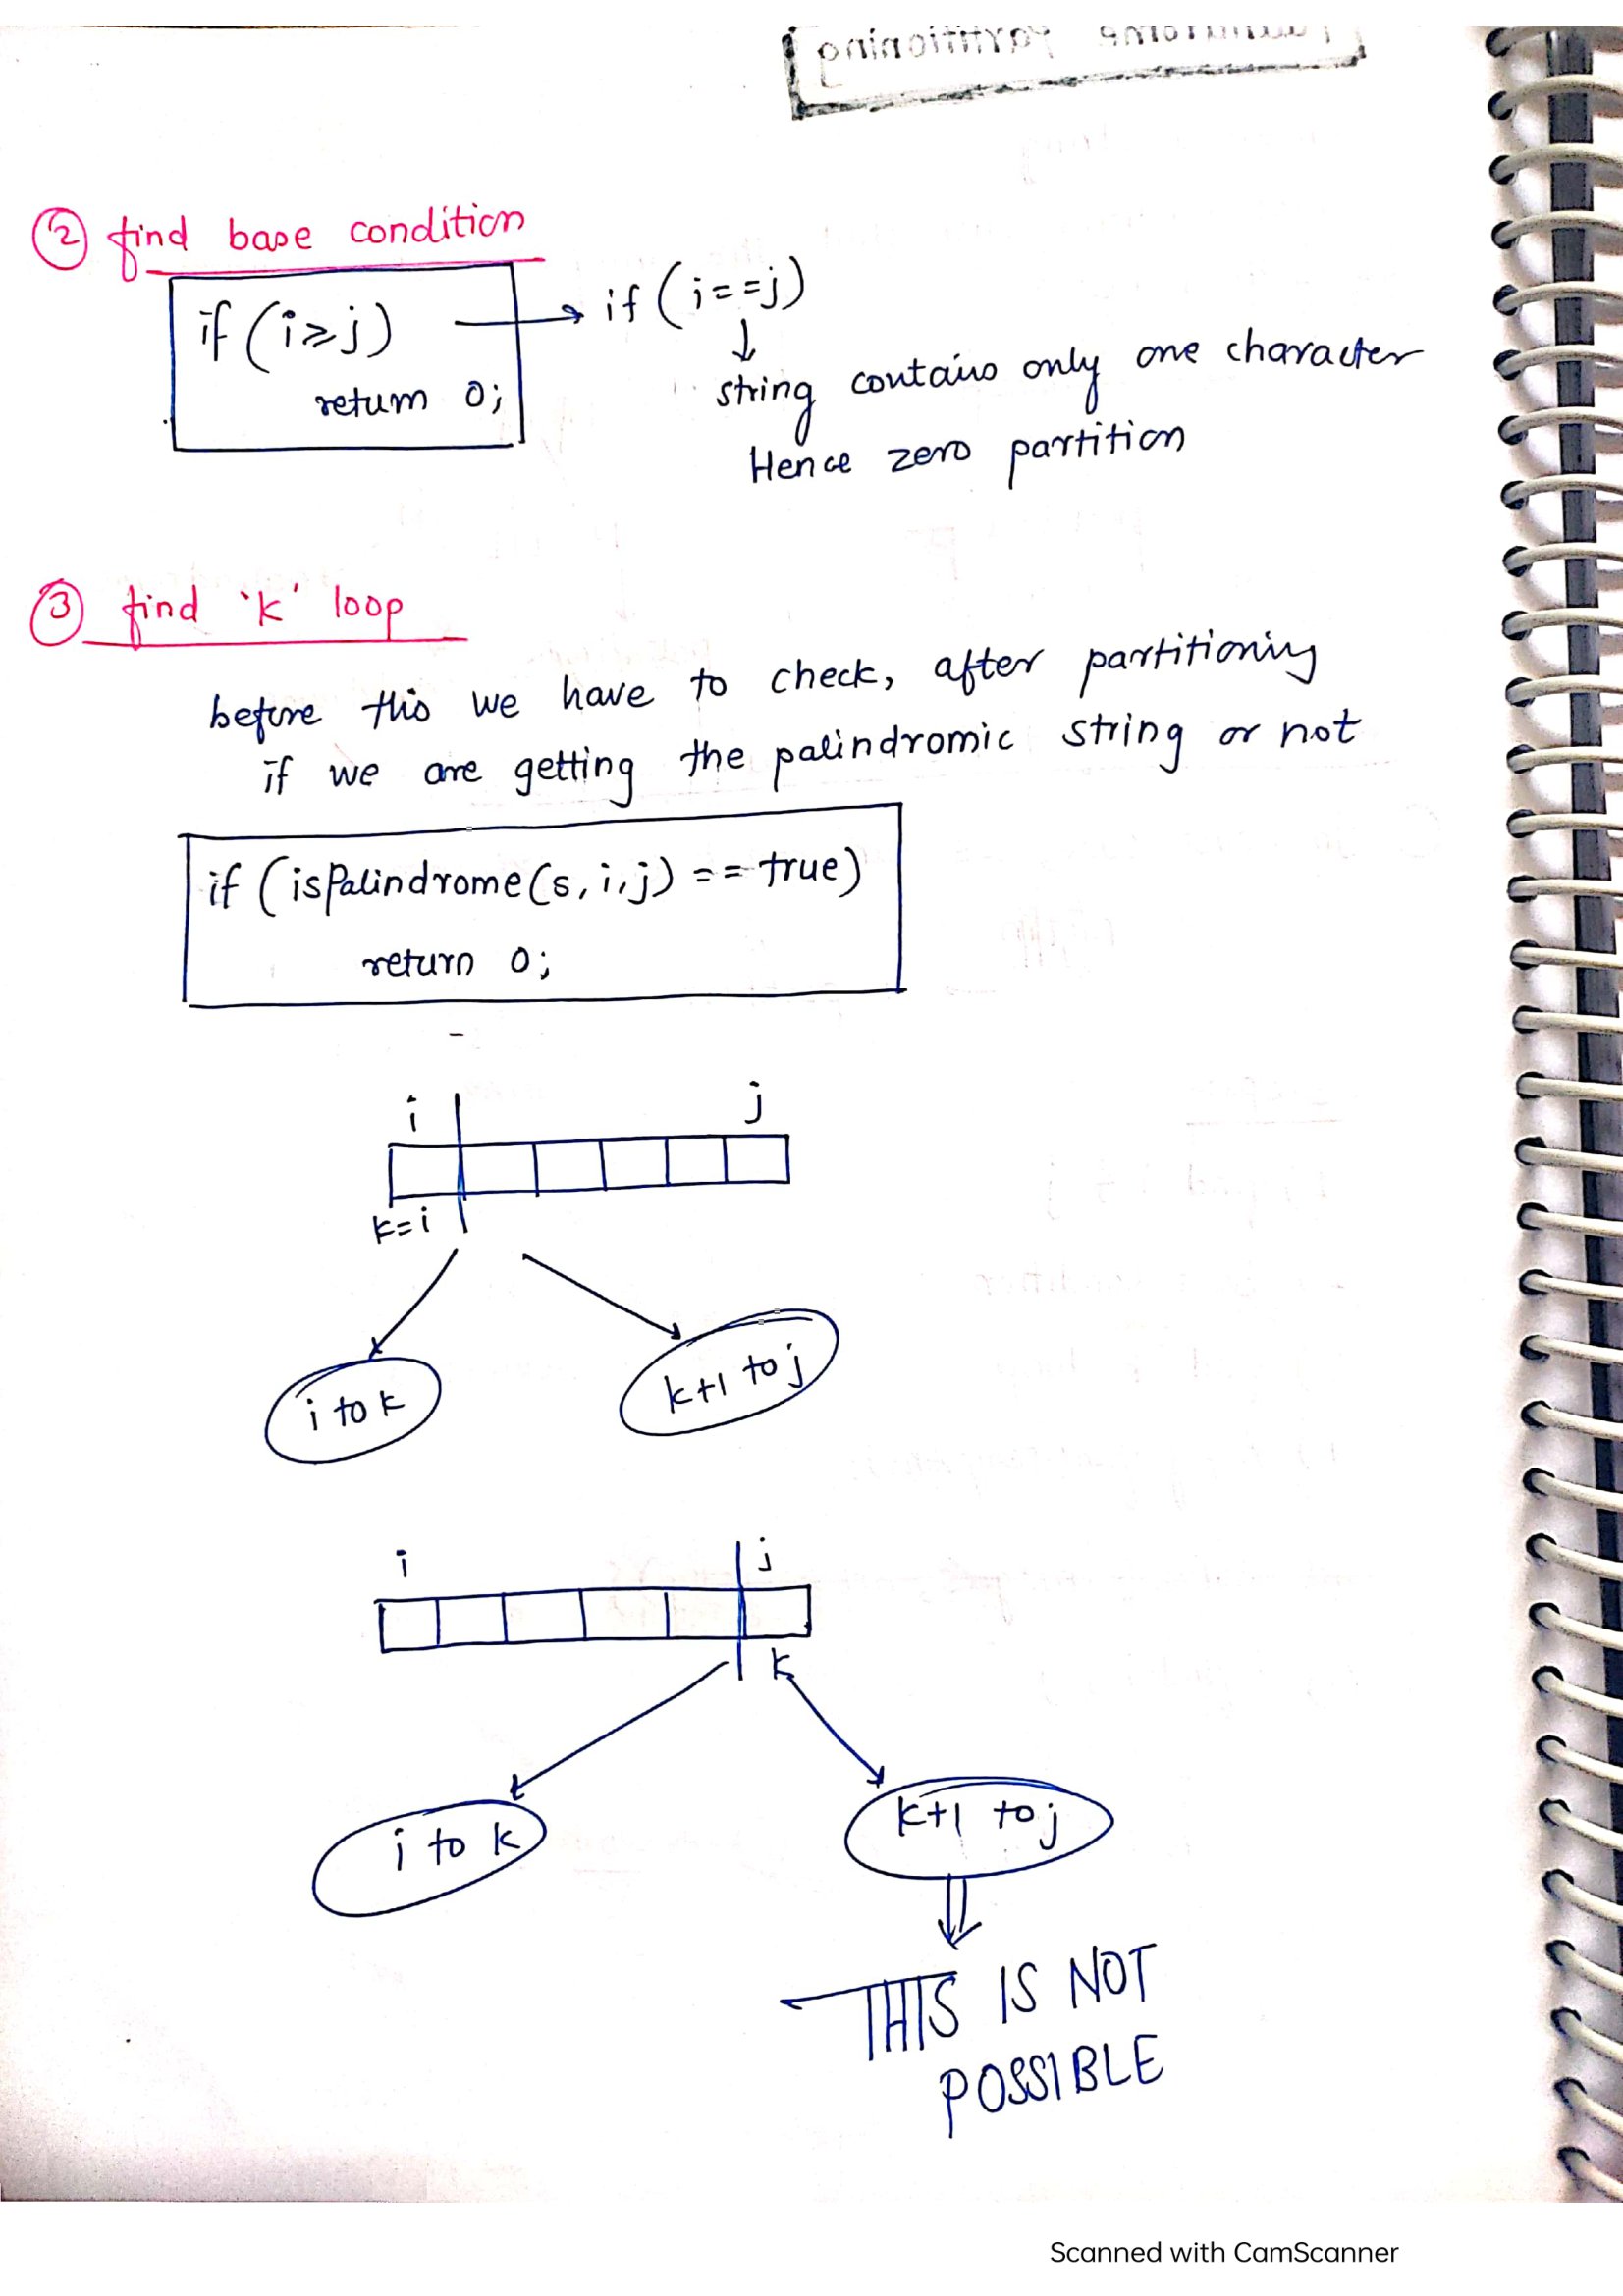 ② find base condition
if (i>=j) → if (i==j)
return 0;
↓
string contains only one character
Hence zero partition
③ find 'k' loop
before this we have to check, after partitioning
if we are getting the palindromic string or not
if (isPalindrome(s, i, j) == true)
return 0;
i j
k=i
i to k k+1 to j
i j
k
i to k k+1 to j
THIS IS NOT
POSSIBLE
Scanned with CamScanner